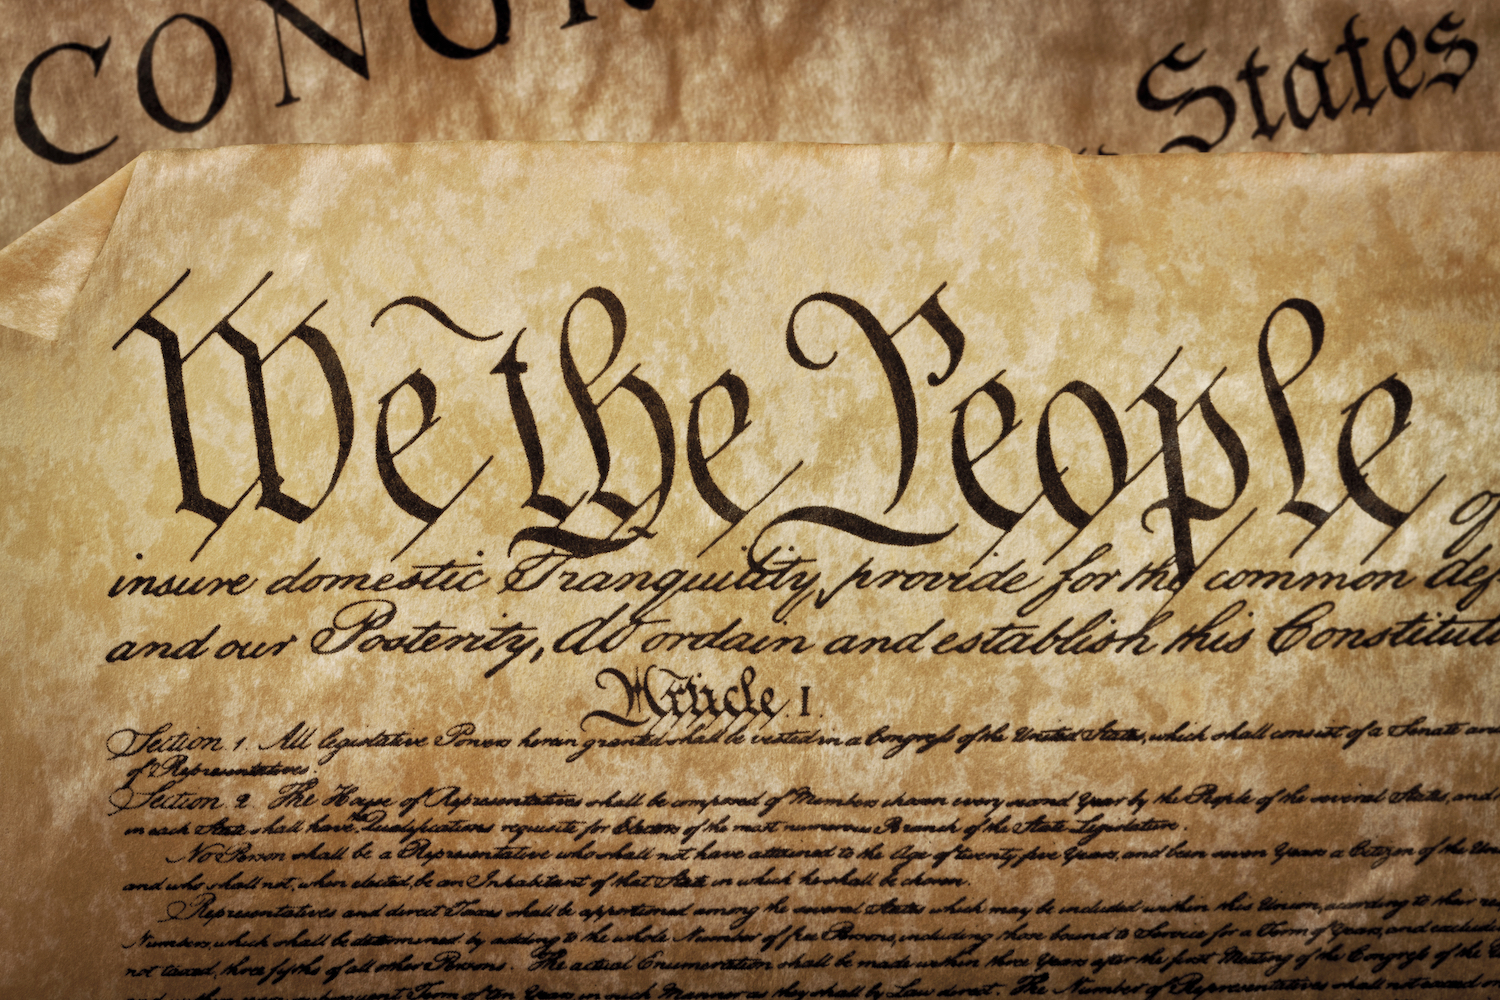 CONGR
States
We the People of
insure domestic Tranquility, provide for the common def
and our Posterity, do ordain and establish this Constituti
Article I.
Section 1. All legislative Powers herein granted shall be vested in a Congress of the United States, which shall consist of a Senate and
of Representatives.
Section 2. The House of Representatives shall be composed of Members chosen every second Year by the People of the several States, and
in each State shall have the Qualifications requisite for Electors of the most numerous Branch of the State Legislature.
No Person shall be a Representative who shall not have attained to the Age of twenty five Years, and been seven Years a Citizen of the Un
and who shall not, when elected, be an Inhabitant of that State in which he shall be chosen.
Representatives and direct Taxes shall be apportioned among the several States which may be included within this Union, according to their re
Numbers, which shall be determined by adding to the whole Number of free Persons, including those bound to Service for a Term of Years, and excludi
not taxed, three fifths of all other Persons. The actual Enumeration shall be made within three Years after the first Meeting of the Congress of the
subsequent Term of ten Years, in such Manner as they shall by Law direct. The Number of Representatives shall not exceed